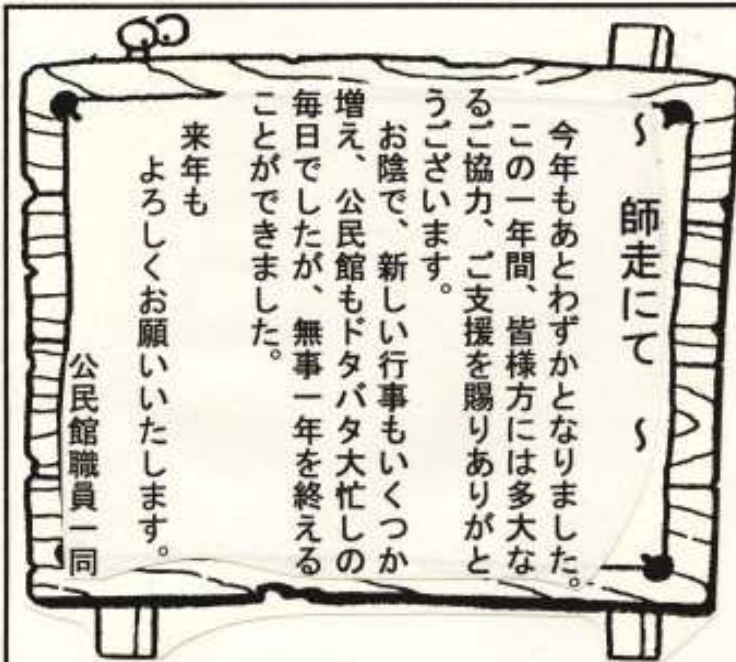 ～ 師走にて ～
今年もあとわずかとなりました。
この一年間、皆様方には多大な
るご協力、ご支援を賜りありがと
うございます。
お陰で、新しい行事もいくつか
増え、公民館もドタバタ大忙しの
毎日でしたが、無事一年を終える
ことができました。
来年も
よろしくお願いいたします。
公民館職員一同